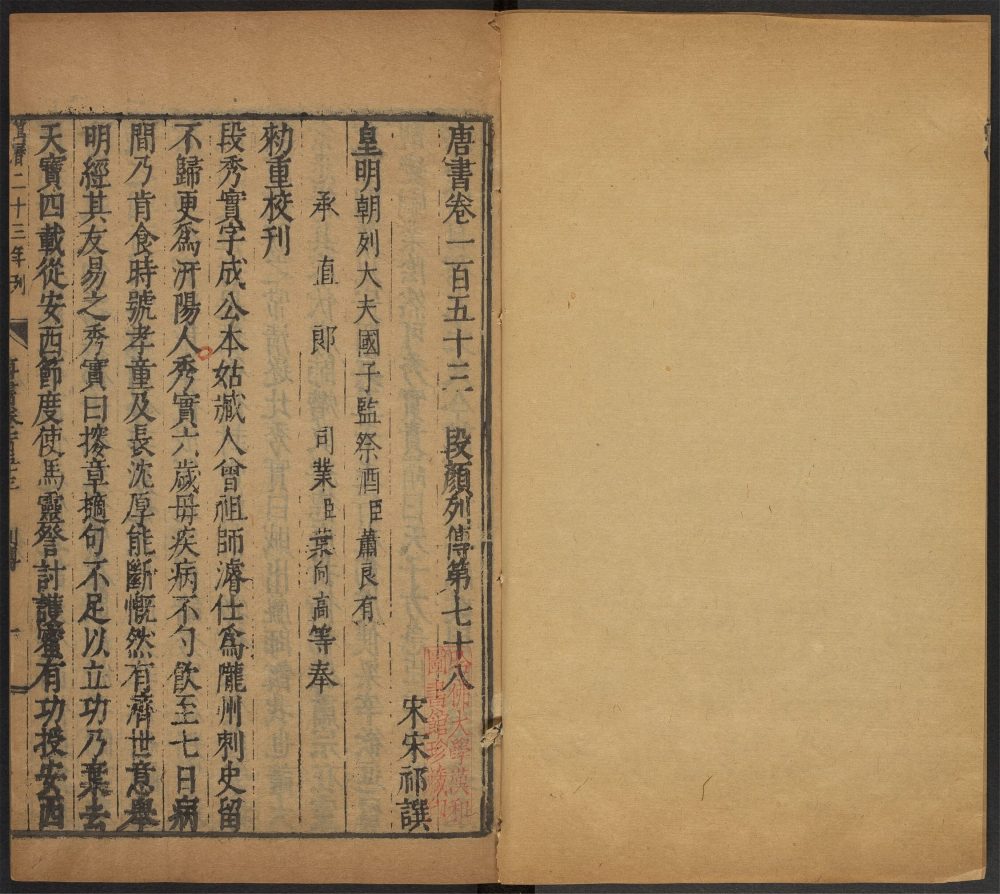 唐書卷一百五十三 段顏列傳第七十八
宋宋祁譔
皇明朝列大夫國子監祭酒臣蕭良有
承直郎司業臣葉向高等奉
勑重校刊
段秀實字成公本姑臧人曾祖師濬仕爲隴州刺史留
不歸更爲汧陽人秀實六歲母疾病不勺飲至七日病
間乃肯食時號孝童及長沈厚能斷慨然有濟世意舉
明經其友易之秀實曰搜章擿句不足以立功乃棄去
天寶四載從安西節度使馬靈詧討護蜜有功授安西
萬曆二十三年刊
哈佛大學漢和
圖書館珍藏印